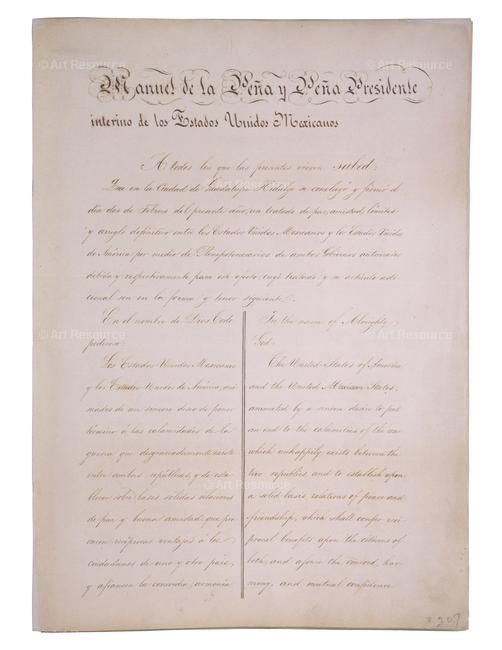 Manuel de la Peña y Peña Presidente
interino de los Estados Unidos Mexicanos
A todos los que las presentes vieren sabed:
Que en la Ciudad de Guadalupe Hidalgo se concluyó y firmó el
dia dos de Febrero del presente año, un tratado de paz, amistad, limites
y arreglo definitivo entre los Estados Unidos Mexicanos y los Estados Unidos
de América por medio de Plenipotenciarios de ambos Gobiernos autorizados
debida y respectivamente para este efecto, cuyo tratado y su articulo adi-
cional son en la forma y tenor siguiente.
En el nombre de Dios Todo-
poderoso
Los Estados Unidos Mexicanos
y los Estados Unidos de América, ani-
mados de un sincero deseo de poner
término á las calamidades de la
guerra que desgraciadamente existe
entre ambas repúblicas, y de esta-
blecer sobre bases sólidas relaciones
de paz y buena amistad, que pro-
curen recíprocas ventajas á los
ciudadanos de uno y otro pais,
y afiancen la concordia, armonia
In the name of Almighty
God:
The United States of America
and the United Mexican States,
animated by a sincere desire to put
an end to the calamities of the war
which unhappily exists between the
two republics and to establish upon
a solid basis relations of peace and
friendship, which shall confer reci-
procal benefits upon the citizens of
both, and assure the concord, har-
mony, and mutual confidence
207
© Art Resource
© Art Resource
© Art Resource
© Art Resource
© Art Resource
© Art Resource